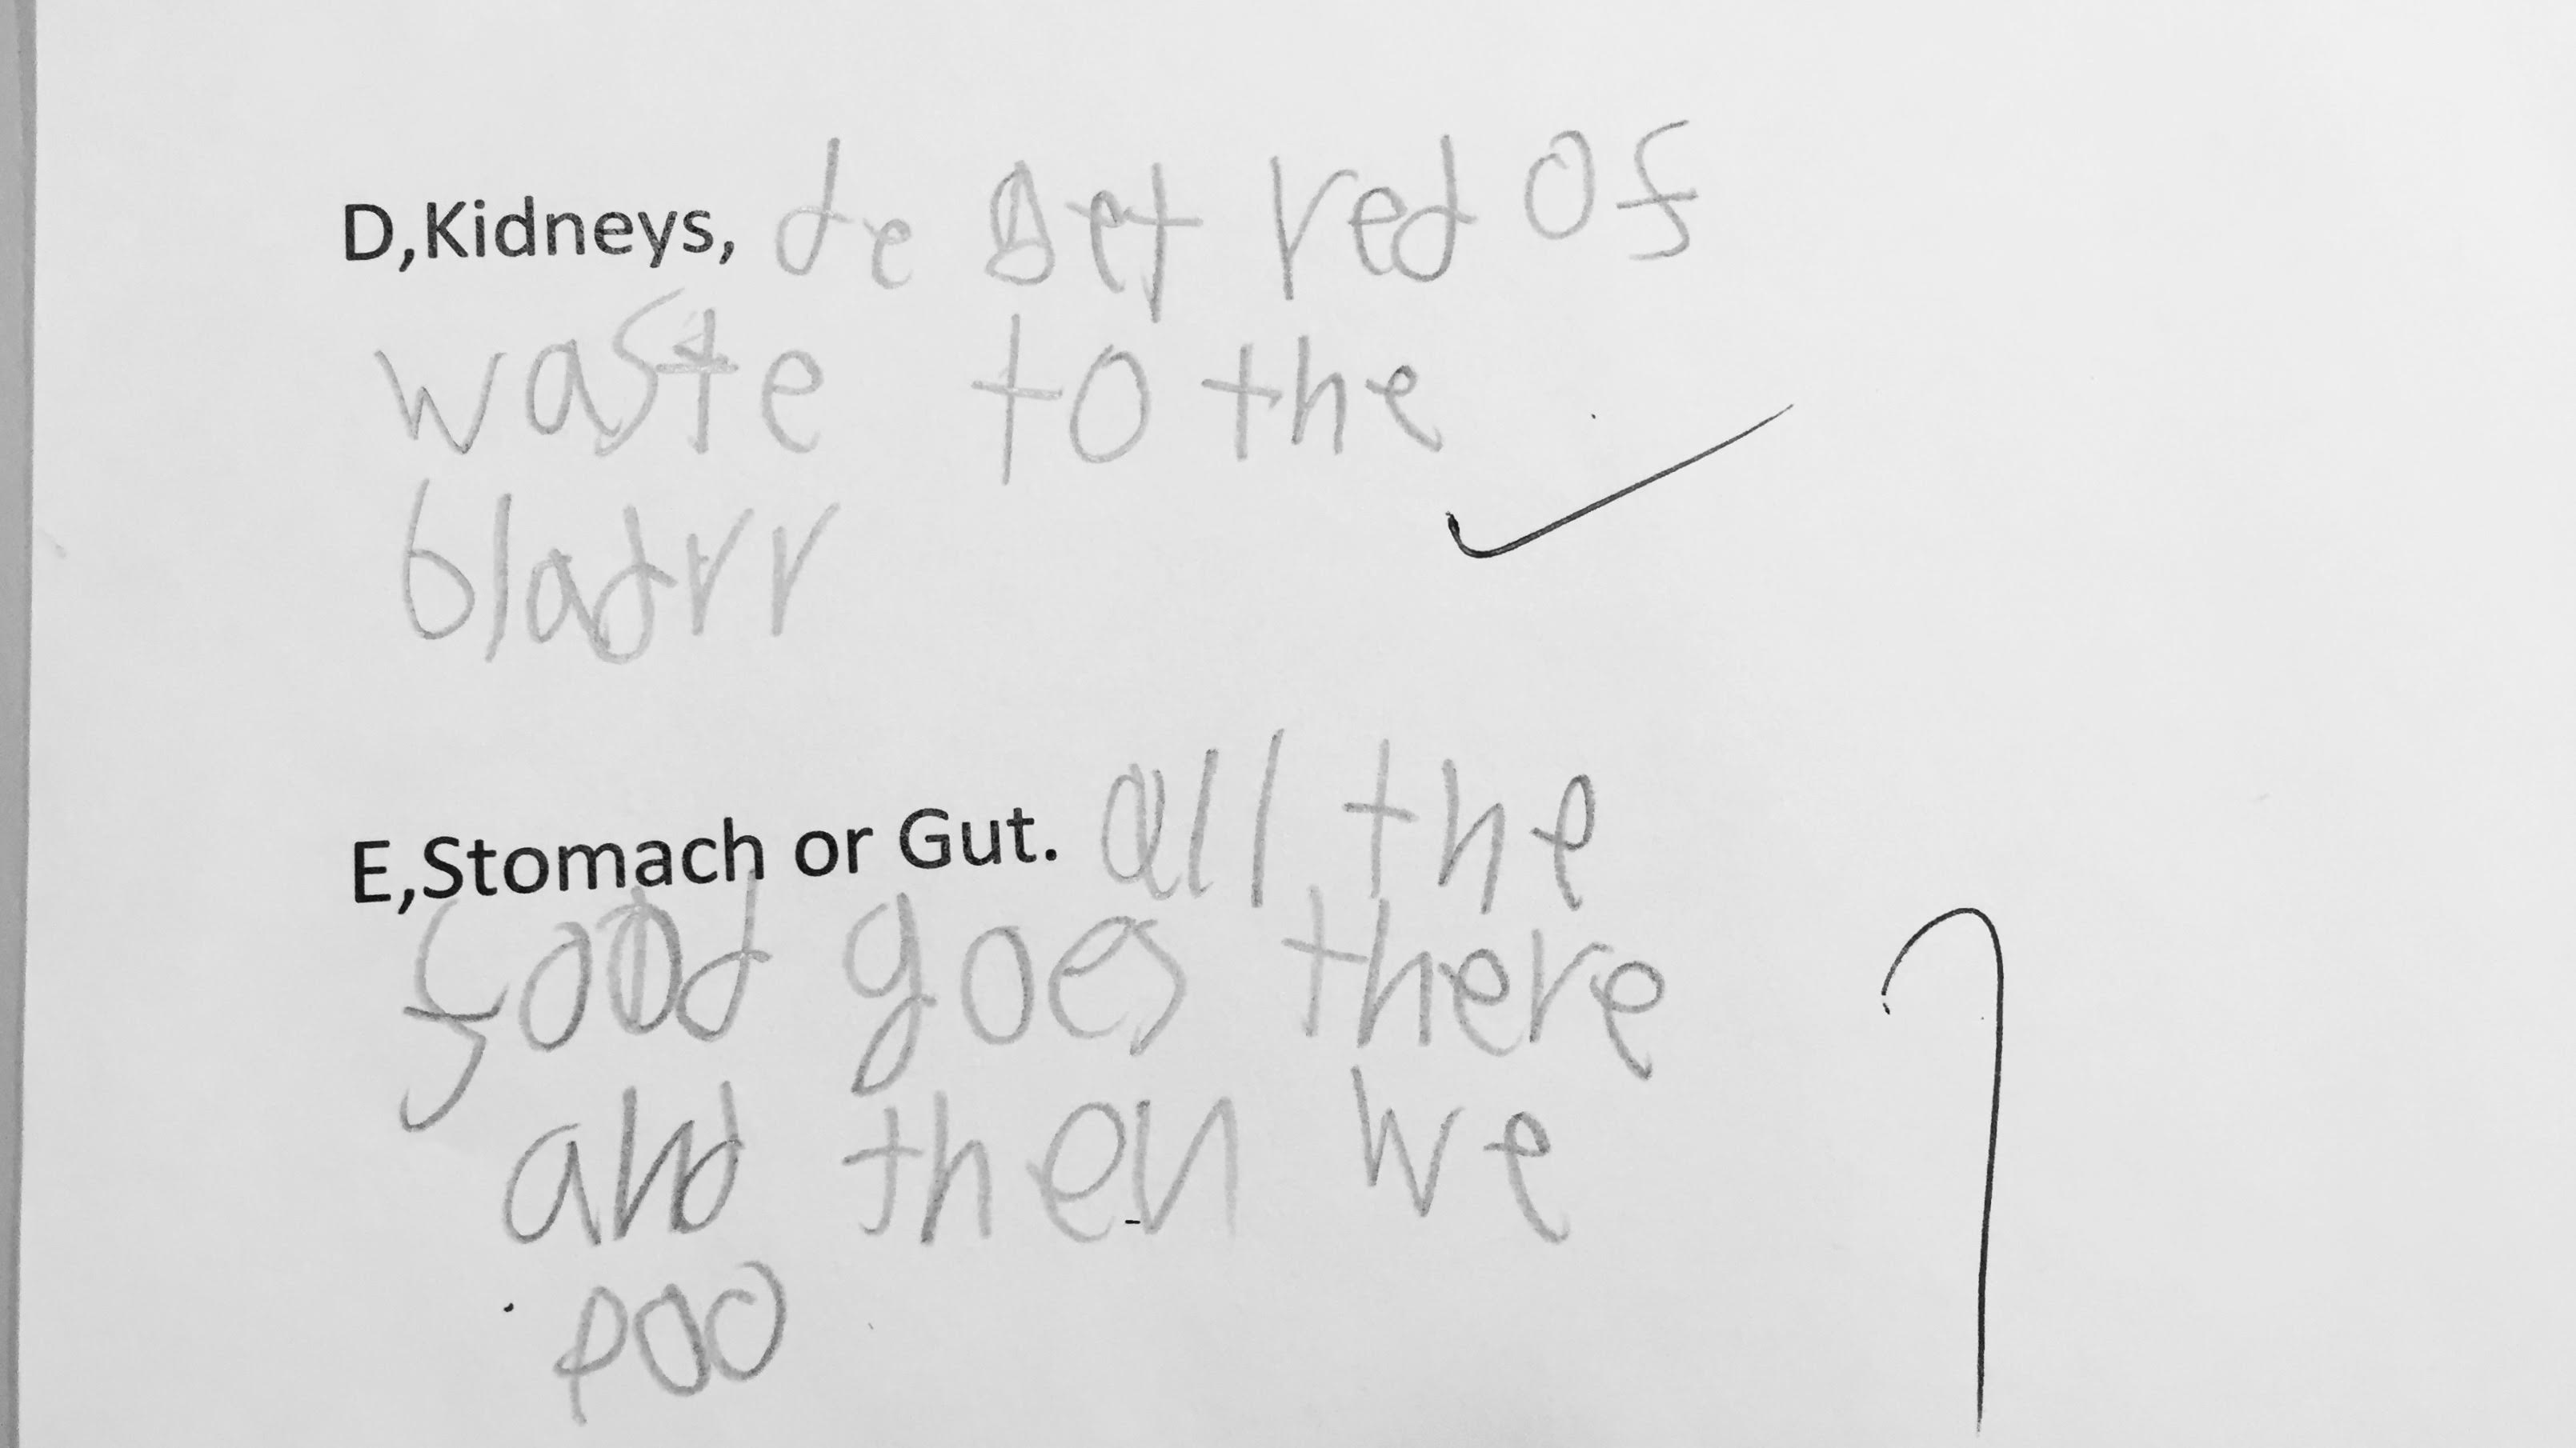 D,Kidneys, de get red of
waste to the
bladrr
E,Stomach or Gut. all the
food goes there
and then we
poo